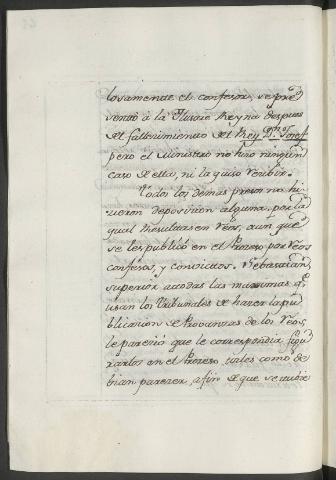 losamente el confesor, se pre
sentó à la Ilustre Reyna despues
del fallecimiento del Rey Dn. Josef
pero el Ministro no hizo ningun
caso de ella, ni la quiso recibir.
Todos los demas presos no hi
cieron deposicion alguna, por la
qual resultasen Reos, aun que
se les publicó en el Proceso por Reos
confesos, y convictos. Sebastian,
superior a todas las maximas q.
usan los Tribunales de hacer la pu
blicacion de Provanzas de los Reos,
le pareció que le correspondia figu
rarlos en el Proceso tales como de
bian parecer, a fin de que se